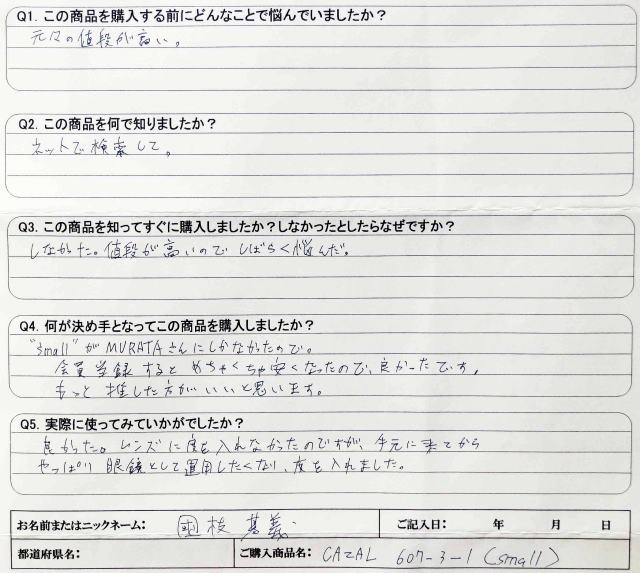 Q1. この商品を購入する前にどんなことで悩んでいましたか？
元々の値段が高い。
Q2. この商品を何で知りましたか？
ネットで検索して。
Q3. この商品を知ってすぐに購入しましたか？しなかったとしたらなぜですか？
しなかった。値段が高いので しばらく悩んだ。
Q4. 何が決め手となってこの商品を購入しましたか？
"small"がMURATAさんにしかなかったので。
会員登録するとめちゃくちゃ安くなったので、良かったです。
もっと推した方がいいと思います。
Q5. 実際に使ってみていかがでしたか？
良かった。レンズに度を入れなかったのですが、手元に来てから
やっぱり眼鏡として運用したくなり、度を入れました。
お名前またはニックネーム： 枝 基義
ご記入日： 年 月 日
都道府県名：
ご購入商品名： CAZAL 607-3-1 (small)